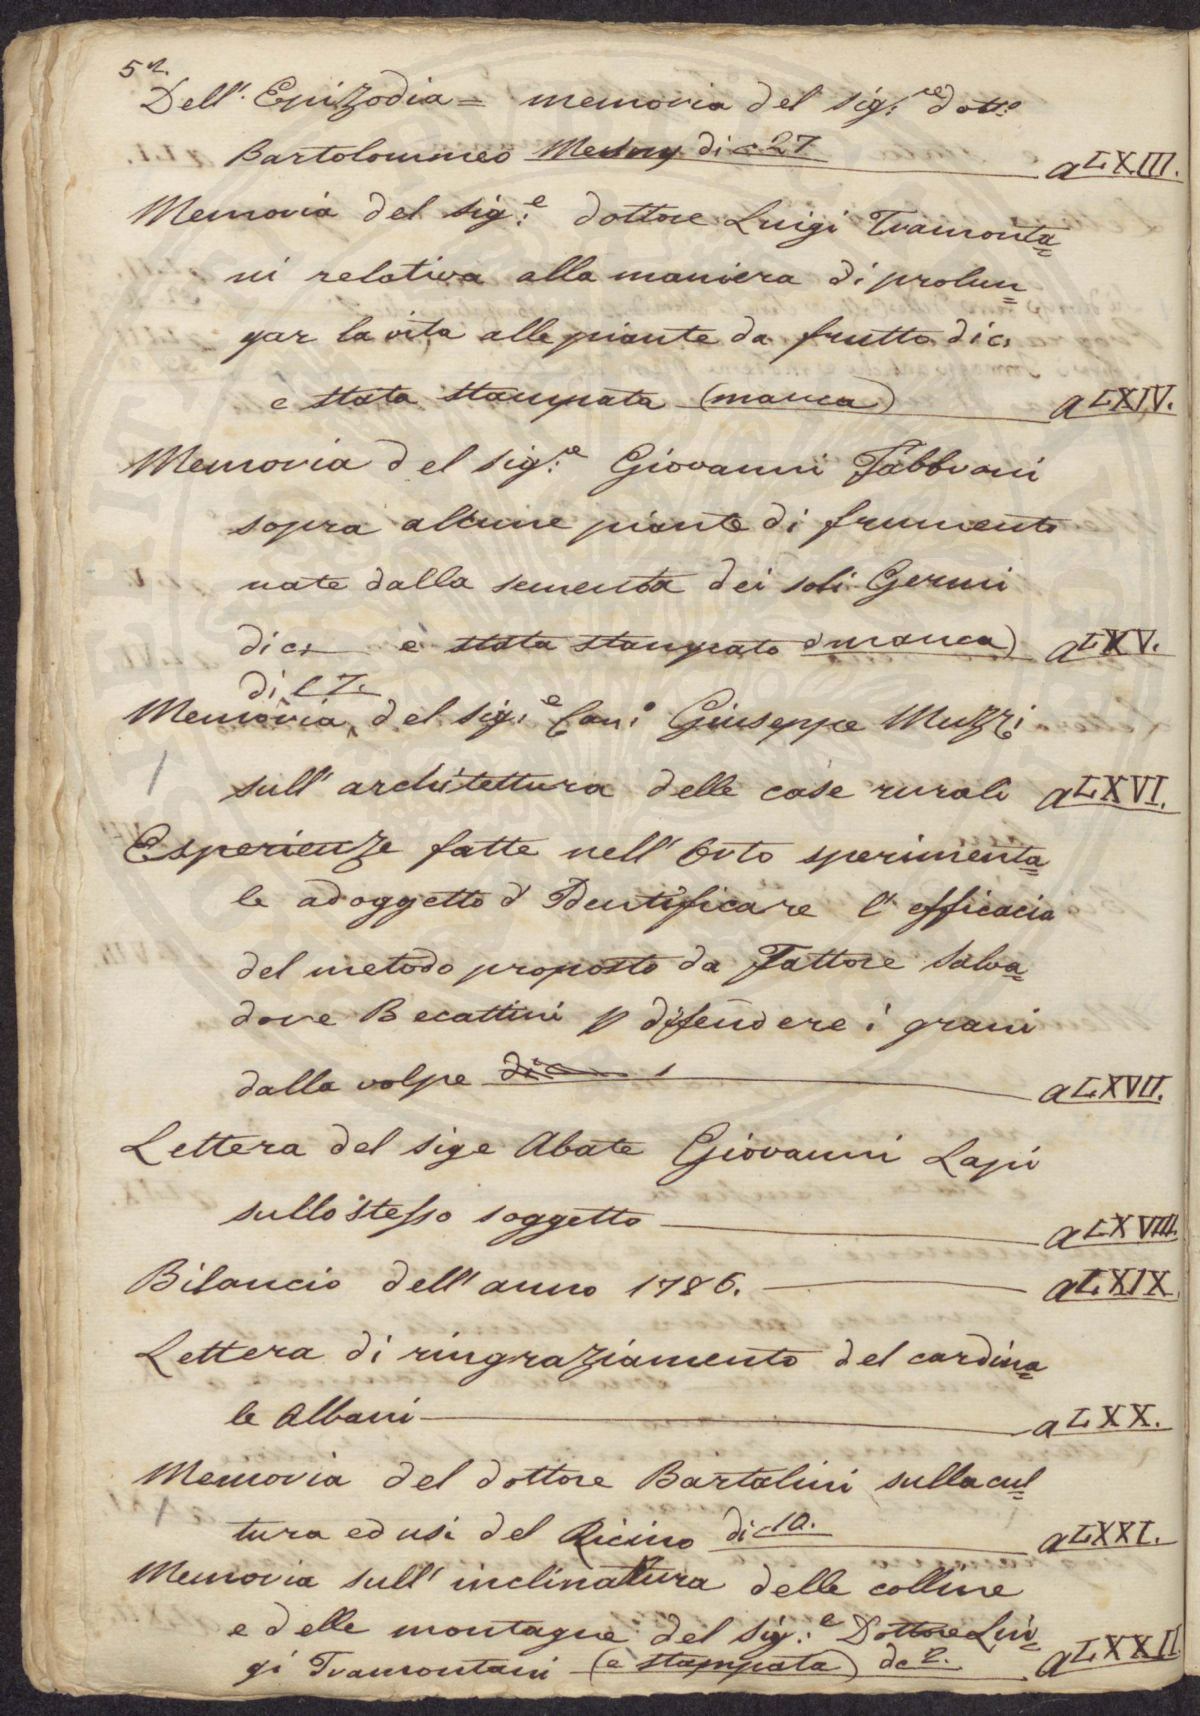 52.
Dell'Epizodia = memoria del sig:re dotto:
Bartolommeo Mesny di c 27 a LXIII.
Memoria del sig:e dottore Luigi Tramonta=
ni relativa alla maniera di prolun=
gar la vita alle piante da frutto di c:
è stata stampata (manca) a LXIV.
Memoria del sig:re Giovanni Fabbroni
sopra alcune piante di frumento
nate dalla sementa dei soli Germi
di c: è stata stampata (manca) a LXV.
di c 7.
Memoria del sig:e Can:o Giuseppe Muzzi
sull'architettura delle case rurali a LXVI.
Esperienze fatte nell'Orto sperimenta=
le ad oggetto d'Identificare l'efficacia
del metodo proposto da Fattore Salva=
dore Becattini p difendere i grani
dalla volpe di c a LXVII.
Lettera del sige Abate Giovanni Lapi
sullo stesso soggetto a LXVIII.
Bilancio dell'anno 1786. a LXIX.
Lettera di ringraziamento del cardina=
le Albani a LXX.
Memoria del dottore Bartalini sulla cul=
tura ed usi del Ricino di c 10. a LXXI.
Memoria sull'inclinatura delle colline
e delle montagne del sig:e Dottore Lui=
gi Tramontani (è stampata) di c 2. a LXXII